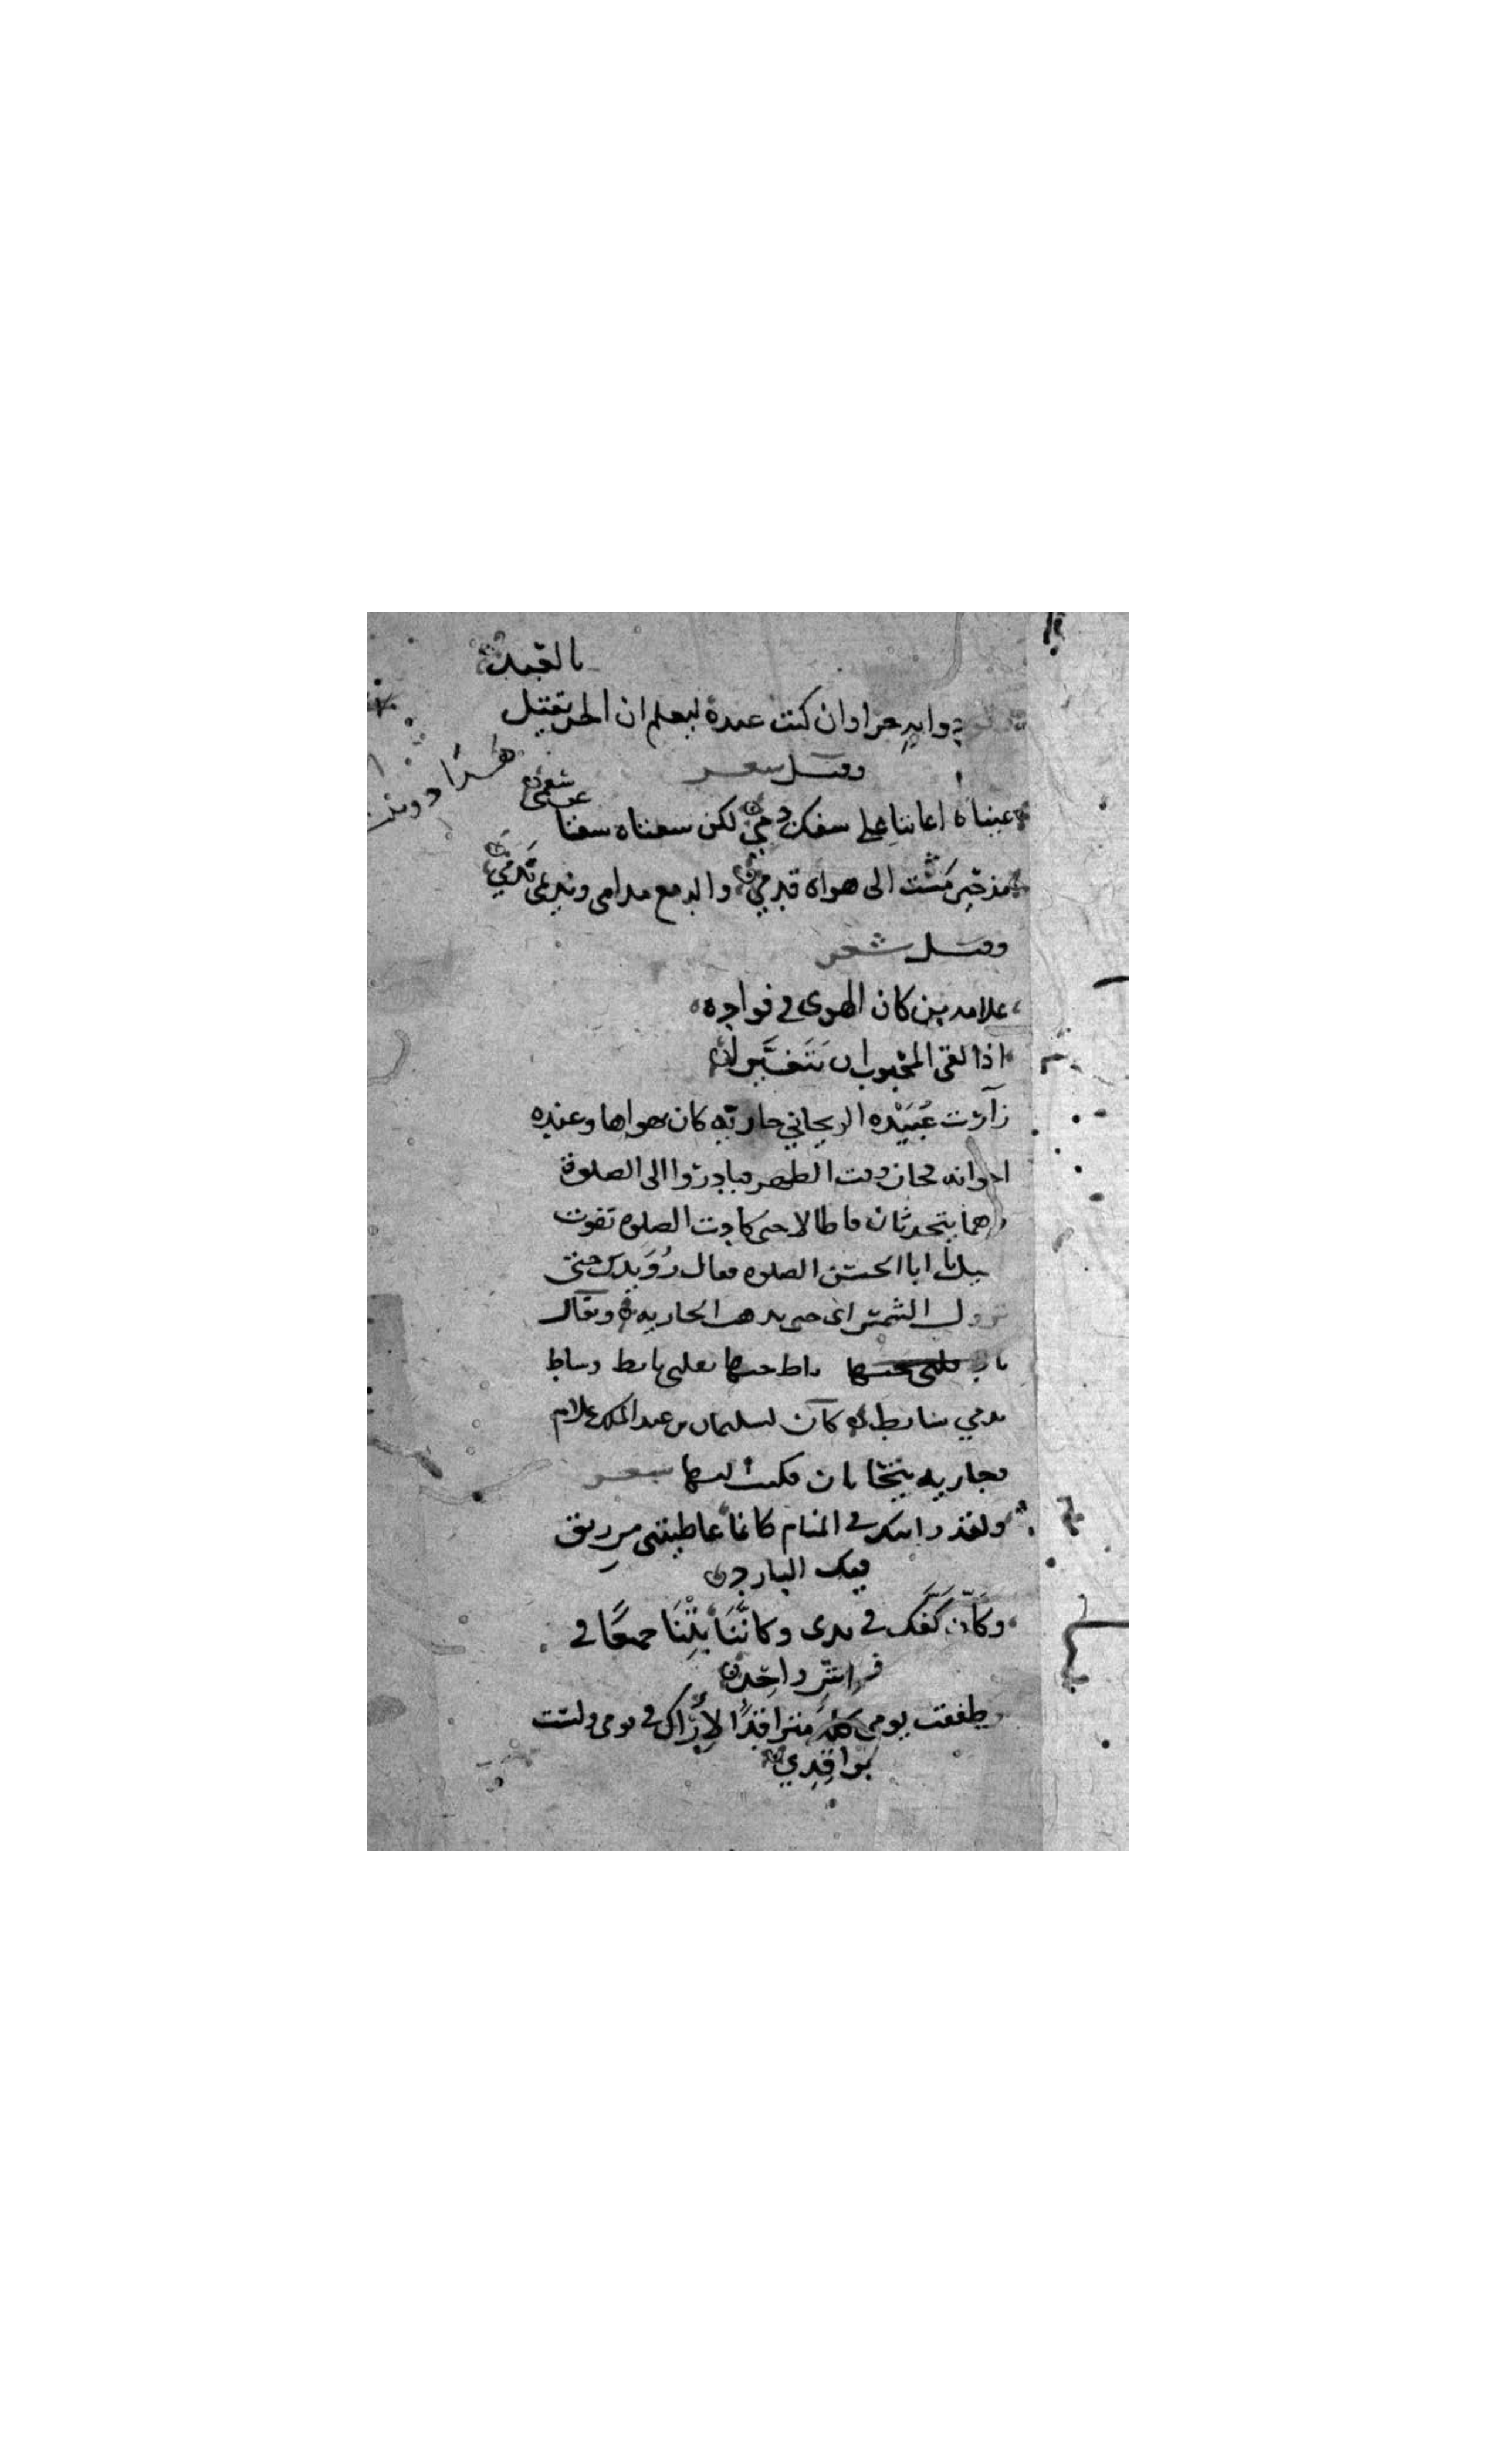 بالعبد
وا بد حرا وان كنت عبده ليعلم ان الحر يقتل
وقيل شعر
عيناه اعانتا على سفك دمي لكن سعتاه سعتا
مذ حين مشت الى هواه قدمي والدمع مدامي وندمى ندمي
وقيل شعر
علامه من كان الهوى في فواده
اذا لقى المحبوب ان يتغيرا
زارت عبيده الريحاني جاريه كان يهواها وعنده
اخوانه فحان وقت الظهر فبادروا الى الصلوة
وهما يتحدثان فاطالا حتى كادت الصلوه تفوت
يا ابا الحسن الصلوه فقال رويدك حتى
تزول الشمس اى حتى تذهب الجاريه ويقال
كان لسليمان بن عبد الملك غلام
وجاريه يتحابان فكتب اليها شعر
ولقد رايتك في المنام كانما عاطيتني من ريق
فيك البارد
وكان كفك في يدى وكاننا بتنا جميعا في
فراش واحد
وطفقت يومي كله متراقدا لاراك في نومى ولست
براقدي